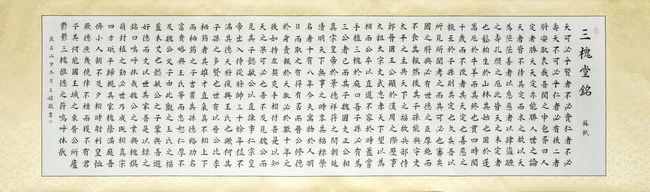 三槐堂銘
蘇軾
天可必乎賢者不必貴仁者不必
壽天不可必乎仁者必有後二者
將安取衷哉吾聞之申包胥曰人
定者勝天天定亦能勝人世之論
天者皆不待其定而求之故以天
為茫茫善者以怠惡者以肆盜跖
之壽孔顏之厄此皆天之未定者
也松柏生於山林其始也困於蓬
蒿厄於牛羊而其終也貫四時閱
千歲而不改者其天定也善惡之
報至於子孫則其定也久矣吾以
所見所聞考之而其可必也審矣
國之將興必有世德之臣厚施而
不食其報然後其子孫能與守文
太平之主共天下之福故兵部侍
郎晉國王公顯於漢周之際歷事
太祖太宗文武忠孝天下望以為
相而公卒以直道不容於時蓋嘗
手植三槐於庭曰吾子孫必有為
三公者已而其子魏國文正公相
真宗皇帝於景德祥符之間朝廷
清明天下無事之時享其福祿榮
名者十有八年今夫寓物於人明
日而取之有得有否而晉公修德
於身責報於天取必於數十年之
後如持左契交手相付吾是以知
天之果可必也吾不及見魏公而
見其子懿敏公以直諫事仁宗皇
帝出入侍從將帥三十餘年位不
滿其德天將復興王氏也歟何其
子孫之多賢也世有以晉公比李
栖筠者其雄才直氣真不相上下
而栖筠之子吉甫其孫德裕功名
富貴略與王氏等而忠恕仁厚不
及魏公父子由此觀之王氏之福
蓋未艾也懿敏公之子鞏與吾遊
好德而文以世其家吾是以錄之
銘曰嗚呼休哉魏公之業與槐俱
萌封植之勤必世乃成既相真宗
四方砥平歸視其家槐陰滿庭吾
儕小人朝不及夕相時射利皇卹
厥德庶幾僥倖不種而穫不有君
子其何能國王城之東晉公所廬
鬱鬱三槐惟德之符嗚呼休哉